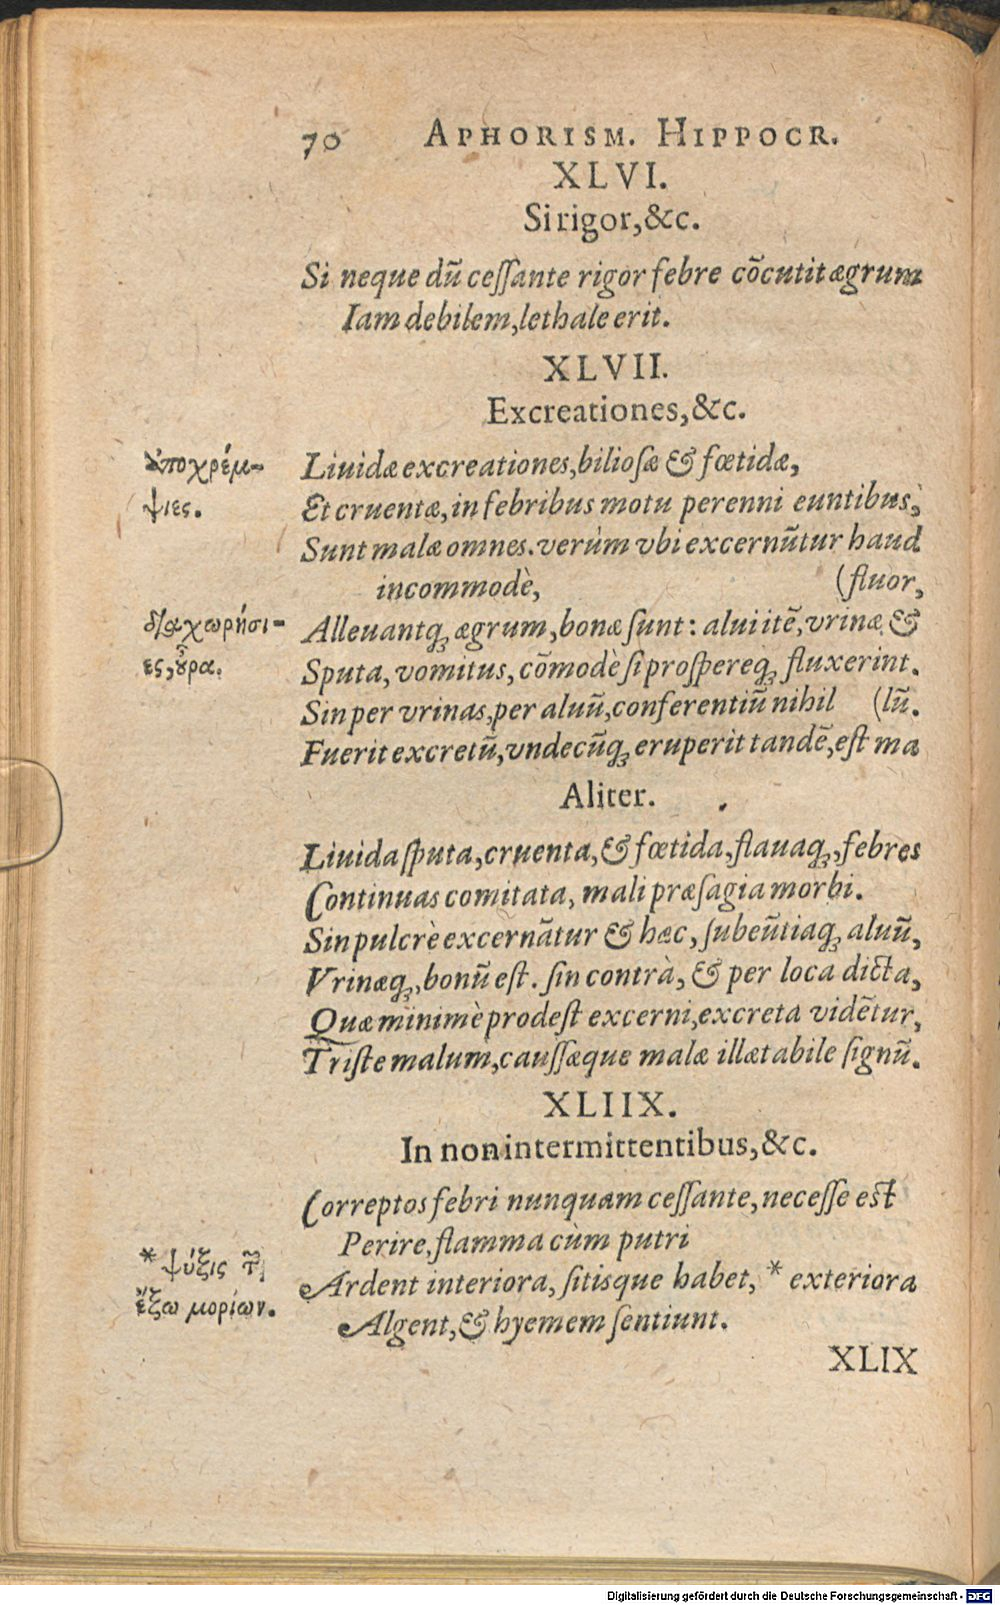 70 APHORISM. HIPPOCR.
XLVI.
Si rigor, &c.
Si neque dũ ceſſante rigor febre cõcutit ægrum
Iam debilem, lethale erit.
XLVII.
Excreationes, &c.
ἀποχρέμ-
ψιες.
Liuidæ excreationes, bilioſæ & fœtidæ,
Et cruentæ, in febribus motu perenni euntibus,
Sunt malæ omnes. verùm vbi excernũtur haud
incommodè, (fluor,
διαχωρήσι-
ες, ȣ̓͂ρα.
Alleuantq́; ægrum, bonæ ſunt: alui itẽ, vrinæ &
Sputa, vomitus, cõmodè ſi proſpereq́; fluxerint.
Sin per vrinas, per aluũ, conferentiũ nihil (lũ.
Fuerit excretũ, vndecũq; eruperit tandẽ, eſt ma
Aliter.
Liuida ſputa, cruenta, & fœtida, flauaq́;, febres
Continuas comitata, mali præſagia morbi.
Sin pulcrè excernãtur & hæc, ſubeũtiaq́; aluũ,
Vrinæq́;, bonũ eſt. ſin contrà, & per loca dicta,
Quæ minimè prodeſt excerni, excreta vidẽtur,
Triſte malum, cauſſæque malæ illætabile ſignũ.
XLIIX.
In non intermittentibus, &c.
Correptos febri nunquam ceſſante, neceſſe est
Perire, flamma cùm putri
* ψύξις τ͂
ἔξω μορίων.
Ardent interiora, ſitisque habet, * exteriora
Algent, & hyemem ſentiunt.
XLIX
Digitalisierung gefördert durch die Deutsche Forschungsgemeinschaft - DFG